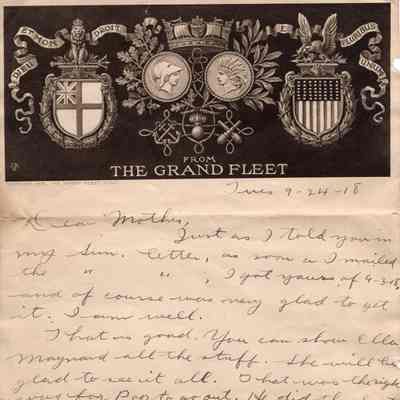 DIEU ET MON DROIT
E PLURIBUS UNUM
FROM
THE GRAND FLEET
Tues 9-24-18
Dear Mother,
Just as I told you in
my Sun. letter, as soon as I mailed
the " " , I got yours of 9-3-18,
and of course was very glad to get
it. I am well.
That is good. You can show Ella
Maynard all the stuff. She will be
glad to see it all. That was the